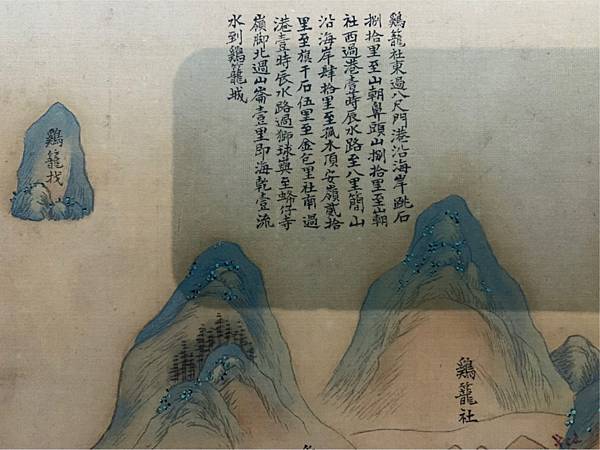 鷄籠社東過八尺門港沿海岸跳石
捌拾里至山朝鼻頭山捌拾里至山朝
社西過港壹時辰水路至八里簡山
沿海岸肆拾里至抓木頂安嶺貳拾
里至旗干石伍里至金包里社南過
港壹時辰水路過獅球嶺至蜂仔寺
嶺脚北過山崙壹里即海乾壹流
水到鷄籠城
鷄籠杙
鷄籠社